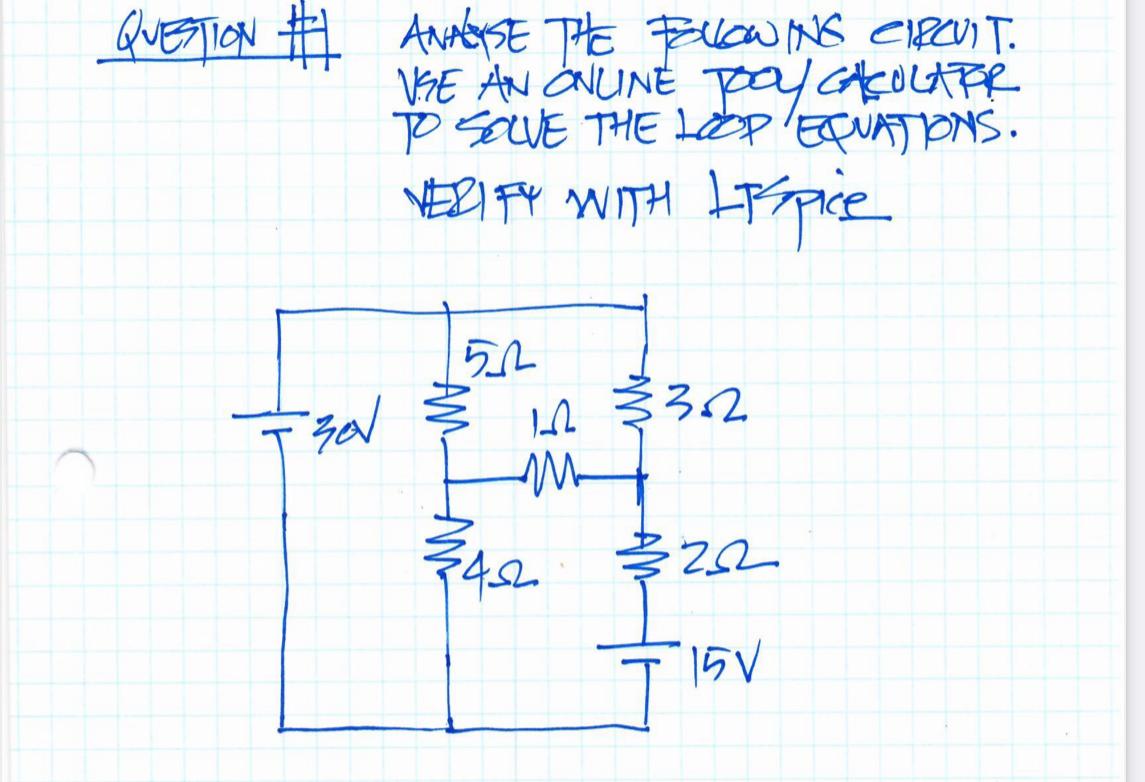 QUESTION #1
ANALYSE THE FOLLOWING CIRCUIT.
USE AN ONLINE TOOL/CALCULATOR
TO SOLVE THE LOOP EQUATIONS.
VERIFY WITH LTSpice
5Ω
1Ω
3Ω
30V
4Ω
2Ω
15V